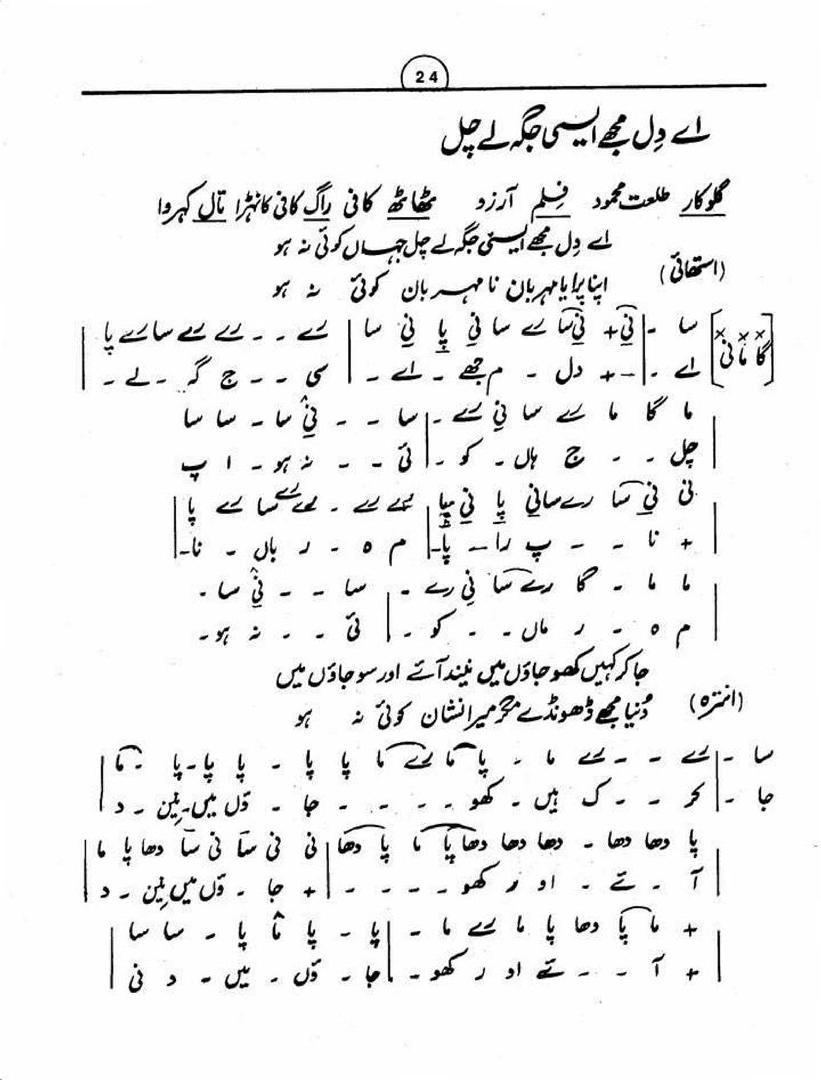 24
اے دِل مجھے ایسی جگہ لے چل
گلوکار طلعت محمود فِلم آرزو ٹھاٹھ کافی راگ کافی کانہڑا تال کہروا
اے دِل مجھے ایسی جگہ لے چل جہاں کوئی نہ ہو
(استھائی)
اپنا پرایا مہربان نا مہربان کوئی نہ ہو
[گا ما نی] سا ۔ | نی + نی سا رے سا نی پا نی سا | رے ۔ ۔ رے رے رے سا رے پا |
اے ۔ | ۔ + دل ۔ م جھے ۔ اے ۔ | سی ۔ ۔ ج گہ ۔ لے ۔ |
| ما گا ما رے سا نی رے ۔ | سا ۔ ۔ نی سا ۔ سا سا
| چل ۔ ۔ ج ہاں ۔ کو ۔ | ئی ۔ ۔ نہ ہو ۔ ا پ
| نی نی سا رے سا نی پا نی سا | رے رے ۔ رے رے سا رے پا |
| + نا ۔ ۔ پ را ۔ یا ۔ | م ہ ۔ ر باں ۔ نا ۔ |
| ما ما ۔ گا رے سا نی رے ۔ | سا ۔ ۔ نی سا ۔
| م ہ ۔ ر ماں ۔ ۔ کو ۔ | ئی ۔ ۔ نہ ہو ۔
جا کر کہیں کھو جاؤں میں نیند آئے اور سو جاؤں میں
(انترہ)
دُنیا مجھے ڈھونڈے مگر میرا نشان کوئی نہ ہو
سا ۔ | رے ۔ ۔ رے ما ۔ پا ما رے ما پا پا ۔ پا پا ۔ پا ۔ ما |
جا ۔ | کر ۔ ۔ ک ہیں ۔ کھو ۔ ۔ ۔ ۔ جا ۔ ؤں میں ۔ نین ۔ د |
| پا دھا دھا ۔ دھا دھا دھا پا ما پا دھا | نی نی سا نی سا دھا پا ما |
| آ ۔ ئے ۔ او ر کھو ۔ ۔ ۔ ۔ | + جا ۔ ؤں میں نین ۔ د |
| + ما پا دھا پا ما رے ما ۔ | پا ۔ پا ما پا ۔ سا سا |
| + آ ۔ ۔ ئے او ر کھو ۔ | جا ۔ ؤں ۔ میں ۔ د نی |